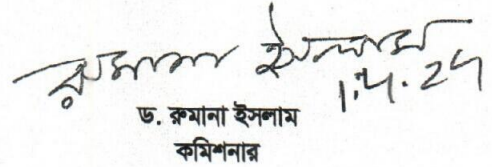 রুমানা ইসলাম
ড. রুমানা ইসলাম
কমিশনার